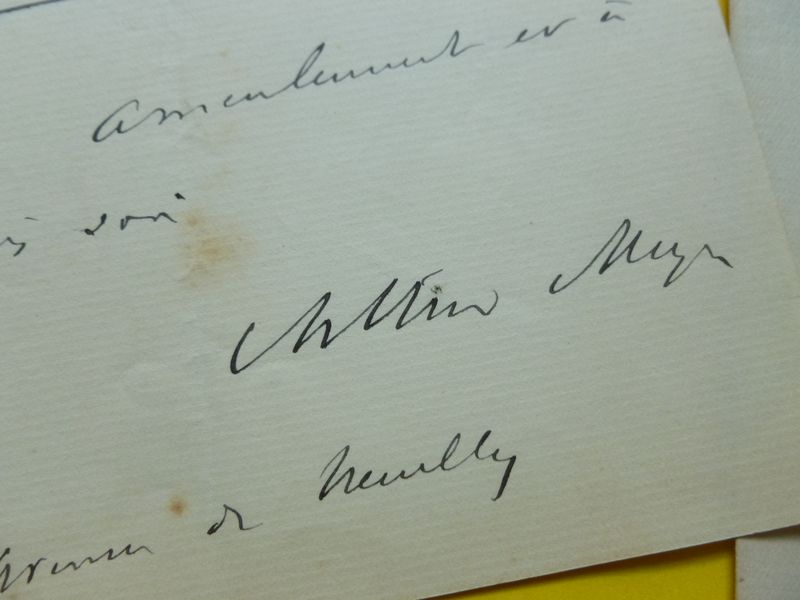 Amicalement et à
soir
Arthur Meyer
de Neuilly